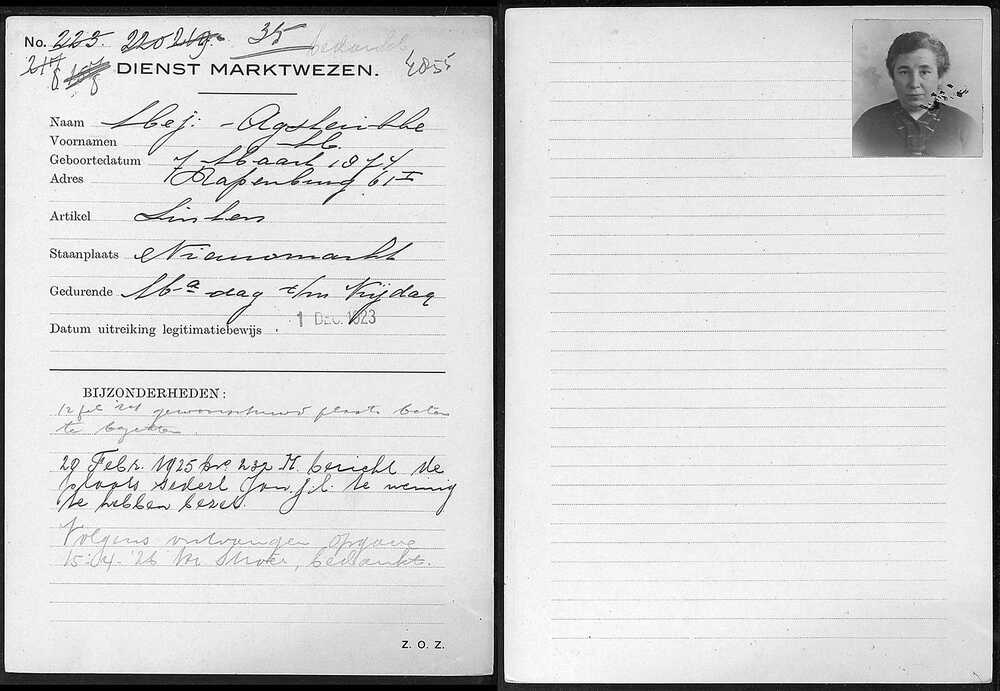 No. 223. 220 219. 35 bedankt
217 167 4855
DIENST MARKTWEZEN.
Naam Mej: Agsteribbe
Voornamen M.
Geboortedatum 7 Maart 1874
Adres Rapenburg 61 I
Artikel Linten
Staanplaats Nieuwmarkt
Gedurende Ma dag t/m Vrijdag
Datum uitreiking legitimatiebewijs . 1 DEC. 1923
BIJZONDERHEDEN:
12 gewaarschuwd plaats beter
te bezetten.
29 Febr. 1925 bericht de
plaats sedert Jan. j.l. te weinig
te hebben bezet.
Volgens ontvangen opgave
15-04-'26 bedankt.
Z. O. Z.